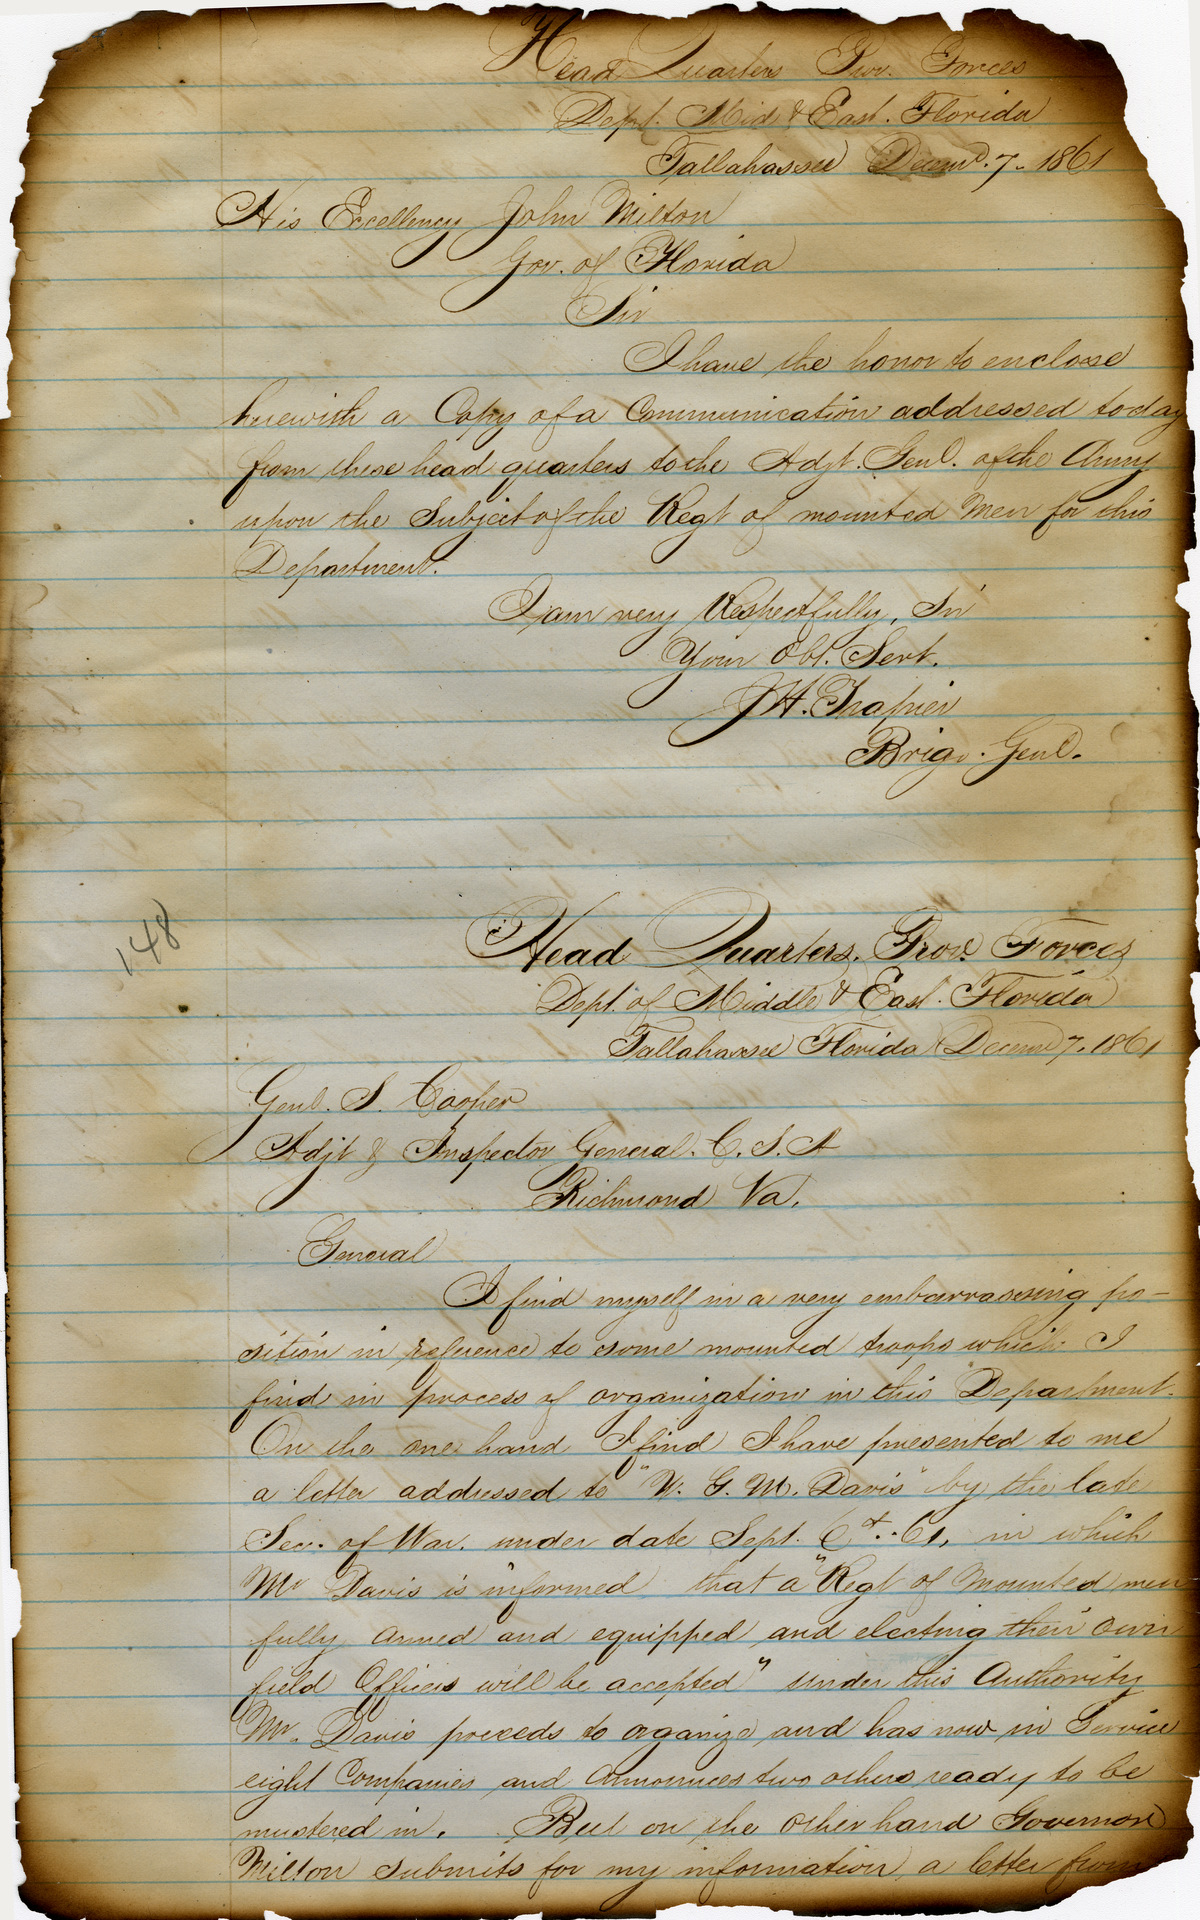 Head Quarters Prov. Forces
Dept. Mid & East. Florida
Tallahassee Decem. 7. 1861
His Excellency John Milton
Gov. of Florida
Sir
I have the honor to enclose
herewith a Copy of a Communication addressed today
from these head quarters to the Adjt. Genl. of the Army
upon the Subject of the Regt of mounted Men for this
Department.
I am very Respectfully, Sir
Your Obt. Servt.
J. H. Trapier
Brig. Genl.
148
Head Quarters, Prov. Forces
Dept. of Middle & East. Florida
Tallahassee Florida Decem 7. 1861
Genl. S. Cooper
Adjt & Inspector General. C. S. A
Richmond Va.
General
I find myself in a very embarrassing po-
sition in reference to some mounted troops which I
find in process of organization in this Department.
On the one hand I find I have presented to me
a letter addressed to "W. G. M. Davis" by the late
Sec. of War. under date Sept. 6th. 61, in which
Mr Davis is informed that a "Regt of Mounted men
fully armed and equipped and electing their own
field Officers will be accepted" under this Authority
Mr. Davis proceeds to organize and has now in Service
eight Companies and announces two others ready to be
mustered in. But on the other hand Governor
Milton submits for my information a letter from